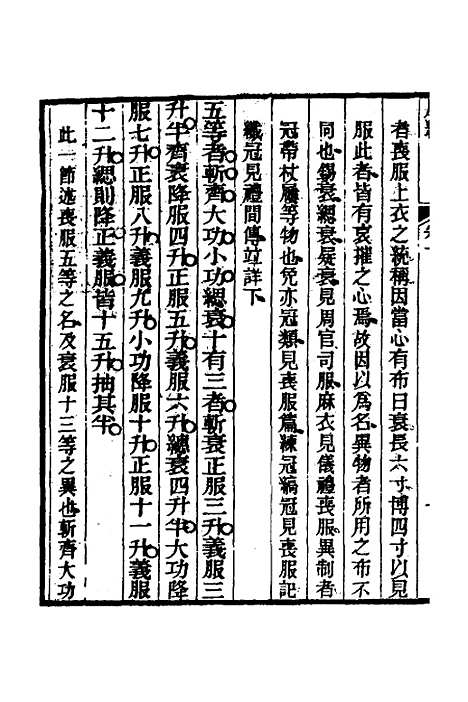 者喪服上衣之統稱因當心有布曰衰長六寸博四寸以見
服此者皆有哀摧之心焉故因以爲名異物者所用之布不
同也錫衰緦衰疑衰見周官司服麻衣見儀禮喪服異制者
冠帶杖屨等物也免亦冠類見喪服篇練冠縞冠見喪服記
纖冠見禮間傳竝詳下
五等者斬齊大功小功緦衰十有三者斬衰正服三升義服三
升半齊衰降服四升正服五升義服六升繐衰四升半大功降
服七升正服八升義服九升小功降服十升正服十一升義服
十二升緦則降正義服皆十五升抽其半
此一節述喪服五等之名及衰服十三等之異也斬齊大功